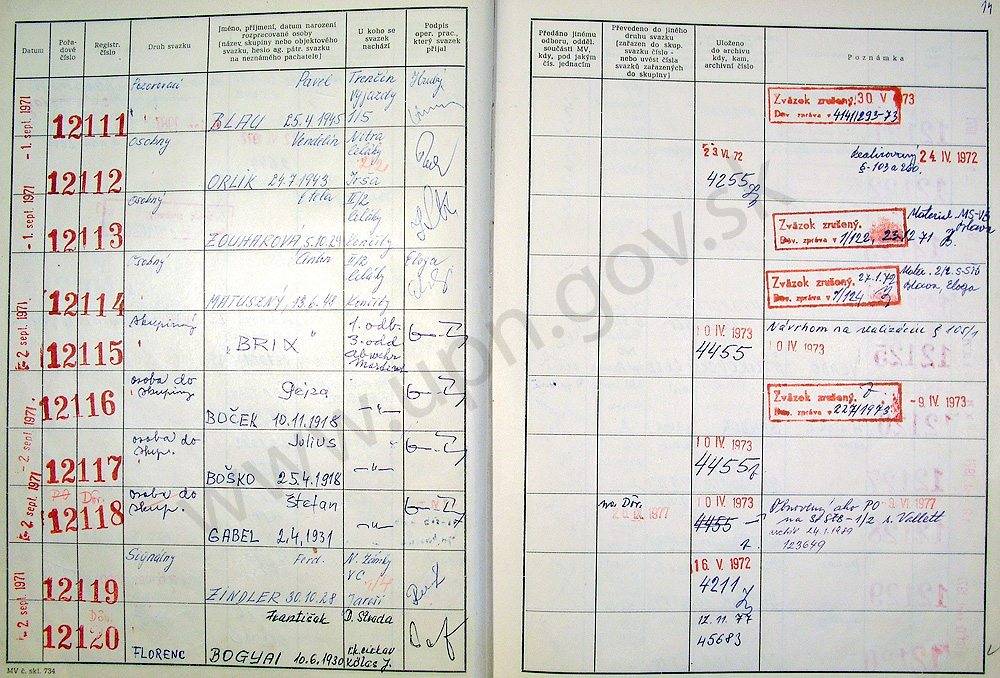 14
Datum
Pořadové číslo
Registr. číslo
Druh svazku
Jméno, příjmení, datum narození rozpracované osoby
(název, skupiny nebo objektového svazku, heslo ag. pátr. svazku na neznámého pachatele)
U koho se svazek nachází
Podpis oper. prac., který svazek přijal
Předáno jinému odboru, odděl. součásti MV, kdy, pod jakým čís. jednacím
Převedeno do jiného druhu svazku (zařazen do skup. svazku číslo - nebo uvést čísla svazků zařazených do skupiny)
Uloženo do archivu kdy, kam, archivní číslo
Poznámka
- 1. sept. 1971
12111
Pozorovací
Pavel
BLAU 25.4.1945
Trenčín
Výjazdy
11/5
Zväzok zrušený. 30 V 1973
Dov. zpráva v 4141/293-73
12112
Osobný
Vendelín
ORLÍK 24.7.1943
Nitra
Celáky
Irša
23. VI. 72
4255
Realizovaný 24 IV. 1972
§-103a200.
- 1. sept. 1971
12113
Osobný
Viera
ZOUHAROVÁ 5.10.29
II/2
Celáky
Zväzok zrušený.
Dov. zpráva v 1/122, 23.12.71
Material MS-VB
Ilava
12114
Osobný
Anton
MATUSENÝ, 13.6.48
II/2
Celáky
Eloga
Zväzok zrušený. 27.1.72
Dov. zpráva v 1/124
Ilava, Eloga
- 2. sept. 1971
12115
Skupinový
"BRIX"
1. odb.
3. odd
10 IV. 1973
4455
Návrhom na realizáciu § 105/1
10 IV. 1973
- 2. sept. 1971
12116
osoba do skupiny
Gejza
BOČEK 10.11.1918
-"-
Zväzok zrušený.
Dov. zpráva v 227/1973
-9. IV. 1973
- 2. sept. 1971
12117
osoba do skup.
Július
BOŠKO 25.4.1918
-"-
10 IV. 1973
4455
- 2. sept. 1971
Dôr.
12118
osoba do skup.
Štefan
GABEL 2.4.1931
-"-
na Dôr.
IX. 1977
10 IV. 1973
4455
Obnovený ako PO
9. VI. 1977
na Sp ŠtB-1/2 s. Vallett
archív 24.1.1989
123649
12119
Signálny
Ferd.
ZINDLER 30.10.28
N. Zámky
VC
16. V. 1972
4211
- 2. sept. 1971
Dôv.
12120
FLORENC
František
BOGYAI 10.6.1930
D. Streda
12.11.77
45683
MV č. skl. 734
www.upn.gov.sk